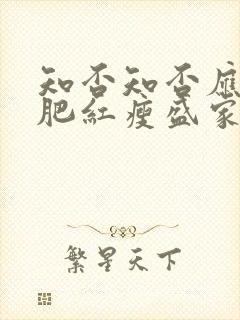 知否知否应
肥红瘦盛家
繁星天下